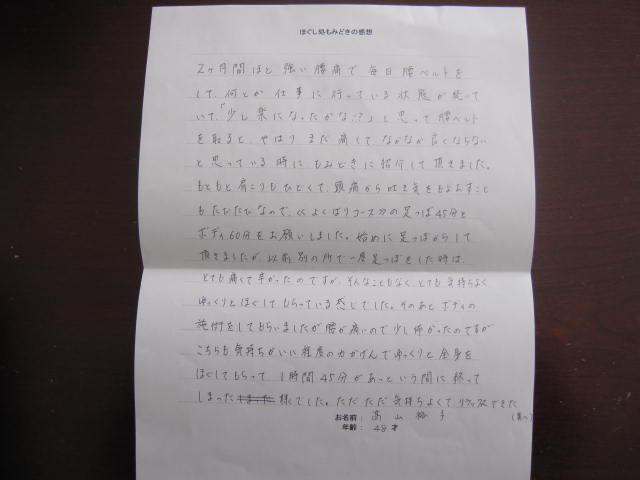 ほぐし処もみどきの感想
2ヶ月間ほど強い腰痛で毎日腰ベルトを
して、何とか仕事に行っている状態が続いて
いて、「少し楽になったかな!?」と思って腰ベルト
を取ると、やはりまだ痛くて、なかなか良くならない
と思っている時にもみどきに紹介して頂きました。
もともと肩こりもひどくて、頭痛から吐き気をもよおすこと
もたびたびなので、≪よくばりコース≫の足つぼ45分と
ボディ60分をお願いしました。始めに足つぼからして
頂きましたが以前別の所で一度足つぼをした時は、
とても痛くて辛かったのですが、そんなこともなく、とても気持ちよく
ゆっくりとほぐしてもらっている感じでした。そのあとボディの
施術をしてもらいましたが腰が痛いので少し怖かったのですが
こちらも気持ちがいい程度の力かげんでゆっくりと全身を
ほぐしてもらって、1時間45分があっという間に終って
しまった様でした。ただただ気持ちよくてリラックスできた
お名前: 高山 子
(裏へ)
年齢: 48才